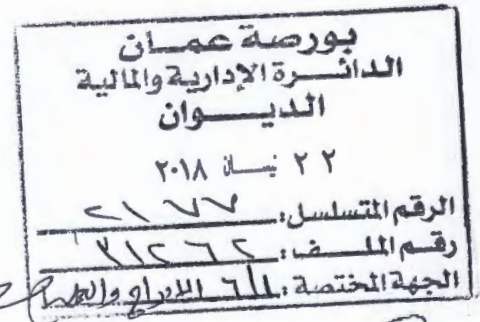 بورصة عمان
الدائرة الإدارية والمالية
الديوان
٢٢ نيسان ٢٠١٨
الرقم المتسلسل: ٢١٧٧
رقم الملف: ٣١٢٦٢
الجهة المختصة: الادراج والعمليات